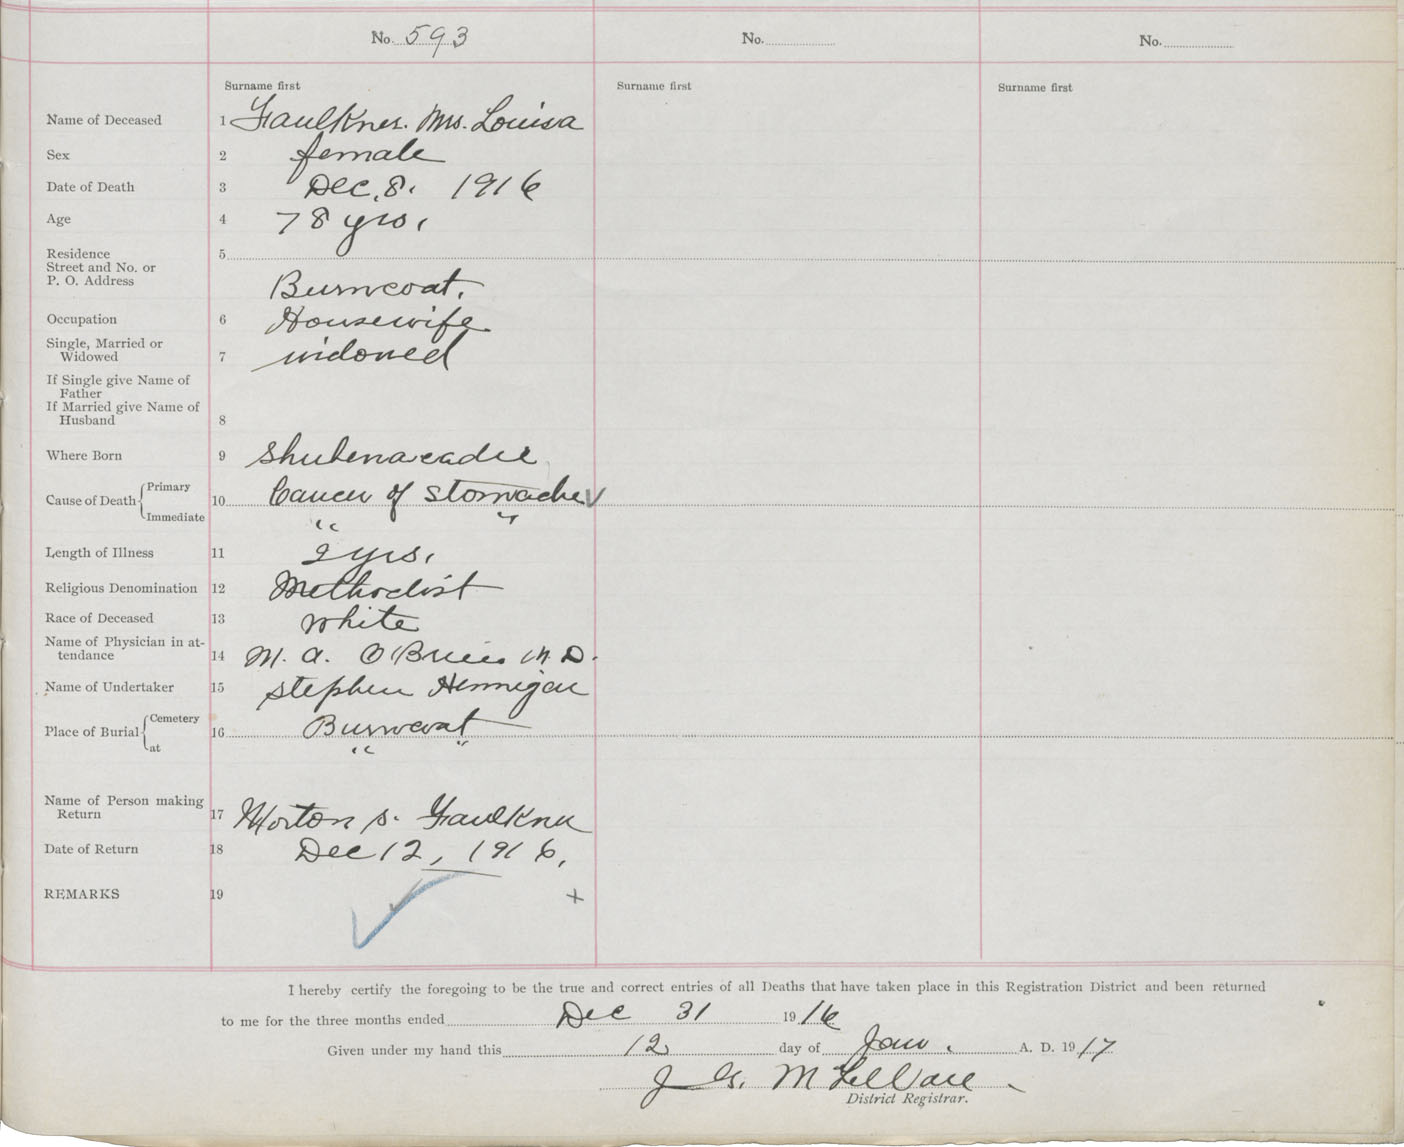 No. 593 No. No.
Surname first Surname first Surname first
Name of Deceased 1 Faulkner. Mrs. Louisa
Sex 2 female
Date of Death 3 Dec. 8. 1916
Age 4 78 yrs.
Residence 5
Street and No. or
P. O. Address Burncoat.
Occupation 6 Housewife
Single, Married or
Widowed 7 widowed
If Single give Name of
Father
If Married give Name of
Husband 8
Where Born 9 Shubenacadie
Cause of Death Primary 10 Cancer of Stomache ✓
Immediate " "
Length of Illness 11 2 yrs.
Religious Denomination 12 Methodist
Race of Deceased 13 White
Name of Physician in at-
tendance 14 M. A. O'Brien M. D.
Name of Undertaker 15 Stephen Hennigar
Place of Burial Cemetery 16 Burncoat
at " "
Name of Person making
Return 17 Morton S. Faulkner
Date of Return 18 Dec 12, 1916,
REMARKS 19 ✓ +
I hereby certify the foregoing to be the true and correct entries of all Deaths that have taken place in this Registration District and been returned
to me for the three months ended Dec 31 1916
Given under my hand this 12 day of Jan. A. D. 1917
J
District Registrar.